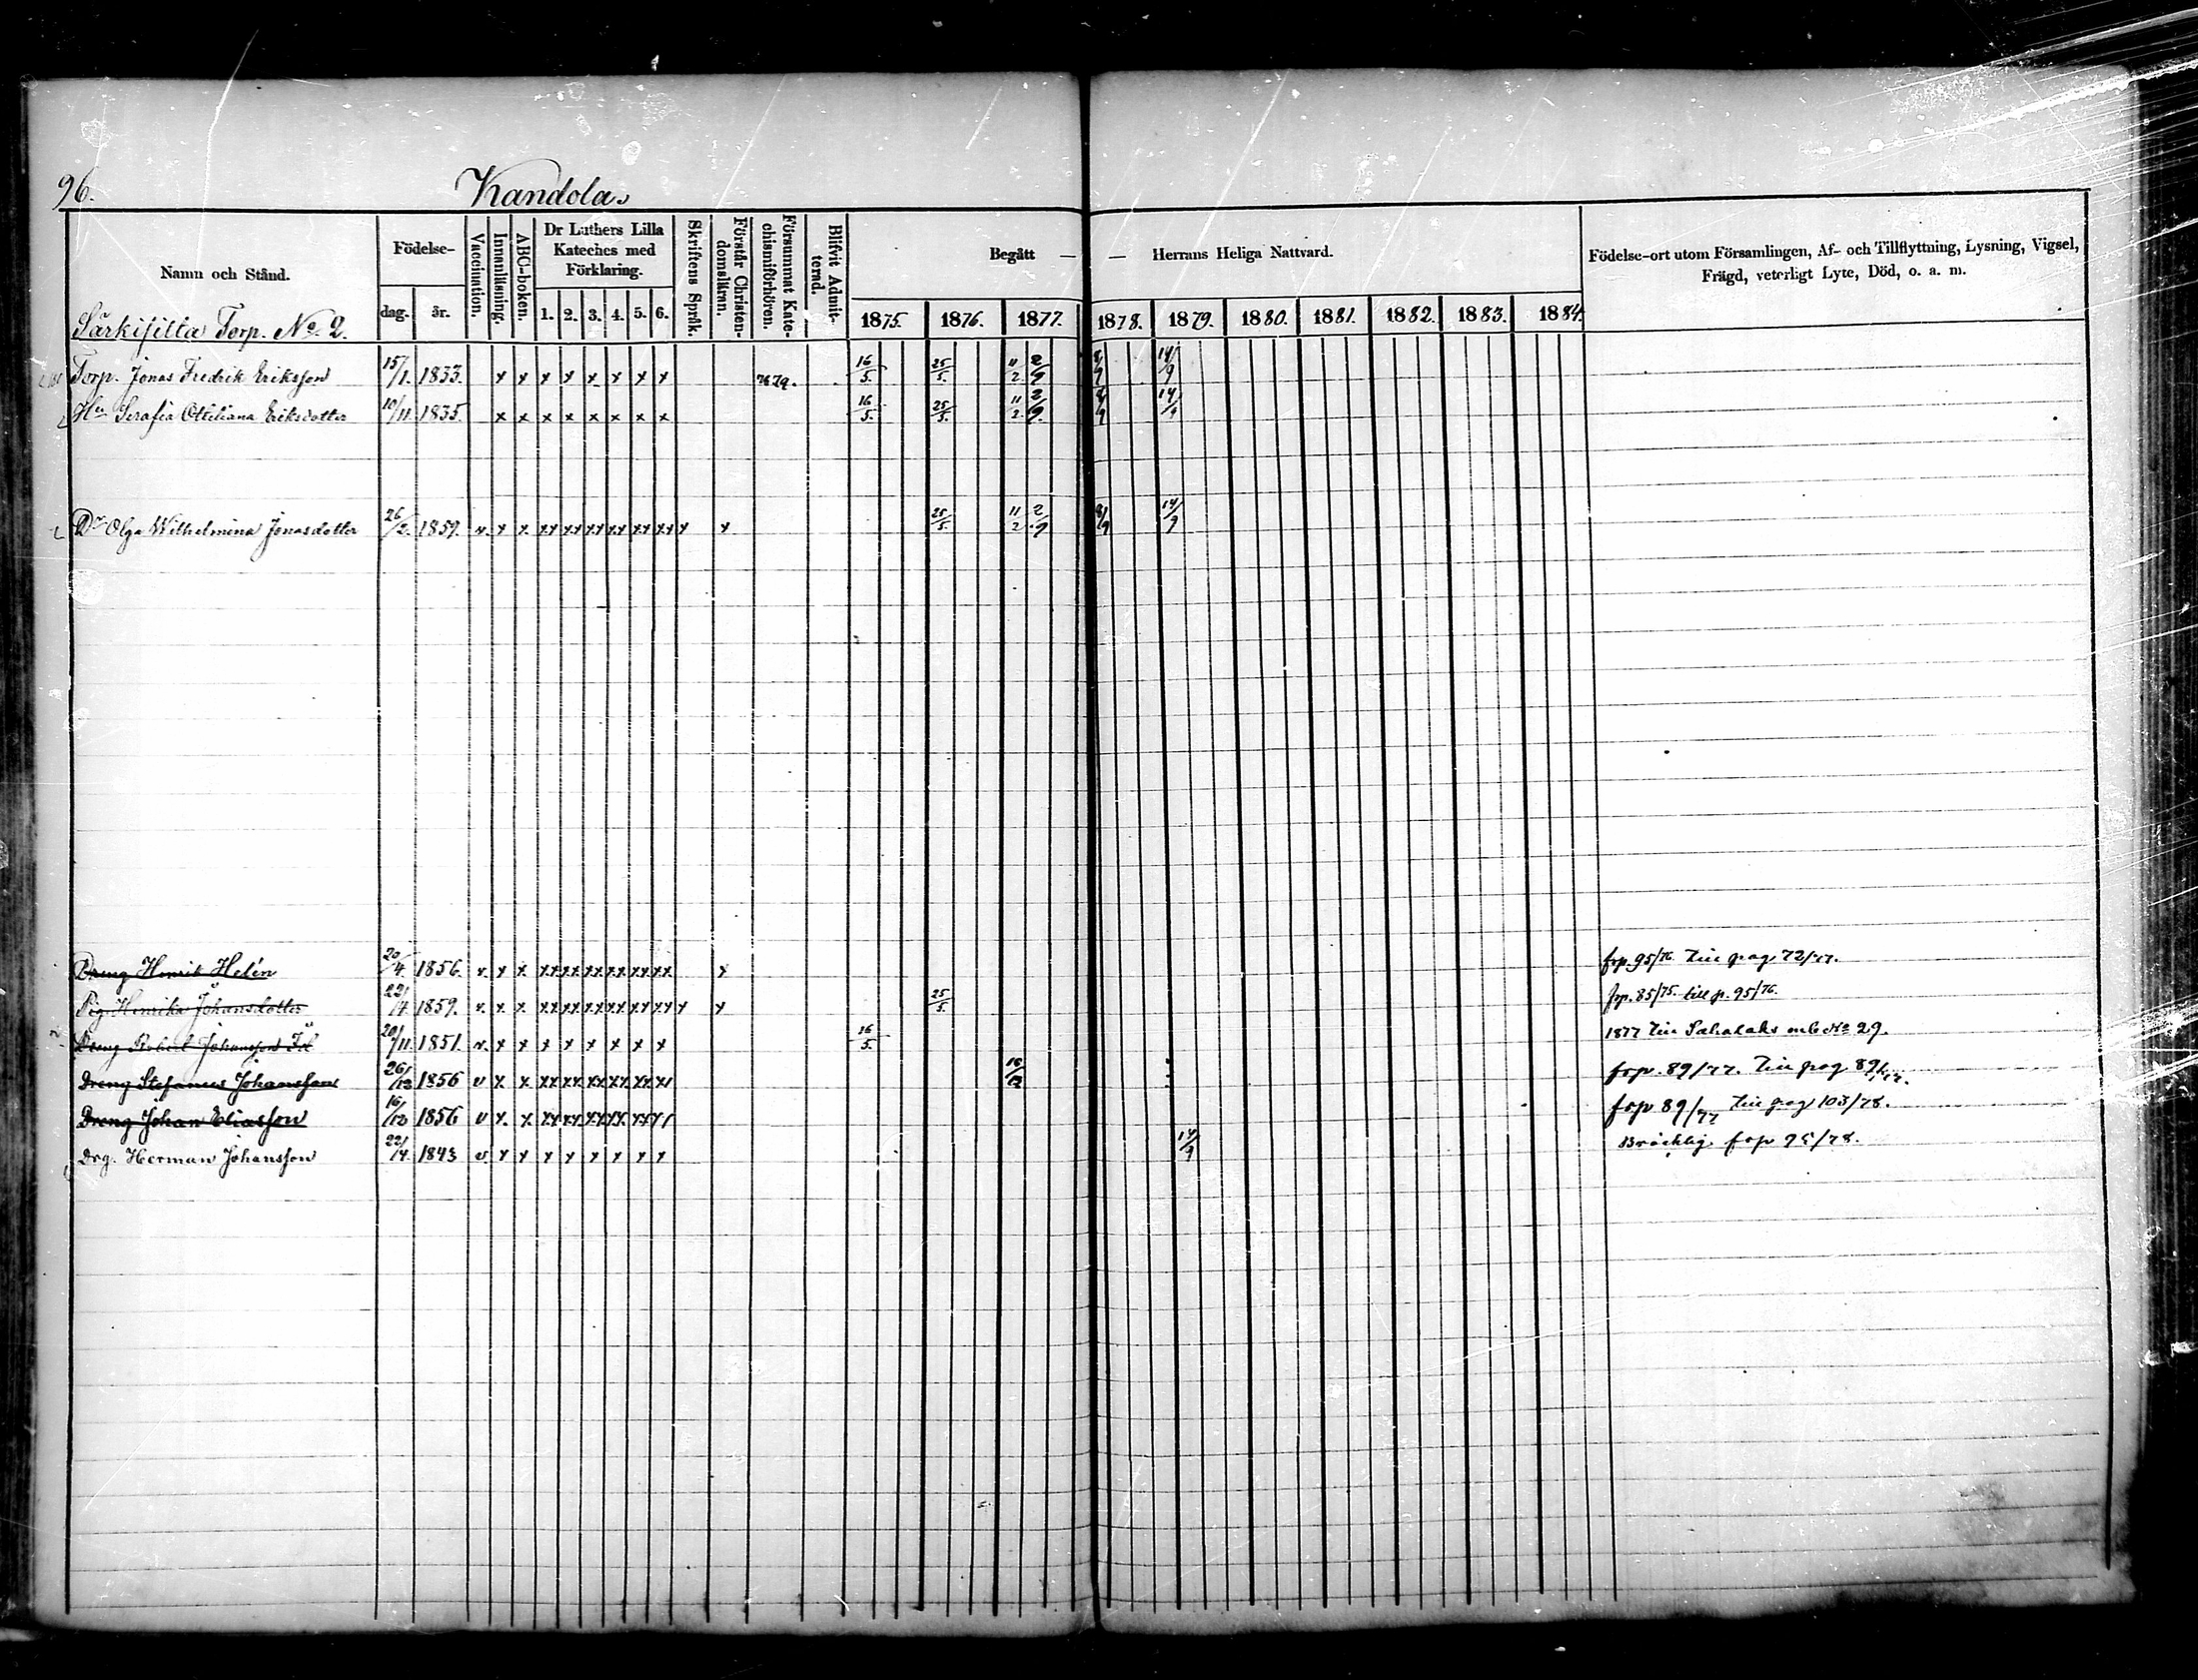 96.
Kandola.
Namn och Stånd.
Födelse-
dag. år.
Vaccination.
Innanläsning.
ABC-boken.
Dr Luthers Lilla Kateches med Förklaring.
1. 2. 3. 4. 5. 6.
Skriftens Språk.
Förstår Christendomsläran.
Försummat Katechismiförhören.
Blifvit Admitterad.
Begått — — Herrans Heliga Nattvard.
1875. 1876. 1877. 1878. 1879. 1880. 1881. 1882. 1883. 1884.
Födelse-ort utom Församlingen, Af- och Tillflyttning, Lysning, Vigsel,
Frägd, veterligt Lyte, Död, o. a. m.
Särkisilta Torp. No 2.
Torp. Jonas Fredrik Eriksson 15/1. 1833. x x x x x x x x 16/5. 25/5. 11/2 2/9 8/9 14/9
Hu Serafia Ottiliana Eriksdotter 10/11. 1835. x x x x x x x x 16/5. 25/5. 11/2 2/9. 8/9 14/9
Dr Olga Wilhelmina Jonasdotter 26/2. 1859. v. x x xx xx xx xx xx xx x x 25/5. 11/2 2/9 8/9 14/9
Dreng Henrik Helén 20/4. 1856. v. x x xx xx xx xx xx xx x frp. 95/76 Till pag 72/77.
Pig. Henrika Johansdotter 22/4 1859. v. x x xx xx xx xx xx xx x x 25/5. frp. 85/75. till p. 95/76.
Dreng Robert Johansson 20/11. 1851. v. x x x x x x x x 16/5. 1877 Till Sahalaks mb No 29.
Dreng Stefanus Johansson 26/12 1856 v x x xx xx xx xx xx xx frp. 89/77. Till pag 89/77.
Dreng Johan Eliasson 16/12 1856 v x. x xx xx xx xx xx xx frp 89/77 Till pag 103/78.
Drg. Herman Johansson 22/4. 1843 v. x x x x x x x x 14/9 Bräcklig. frp 95/78.